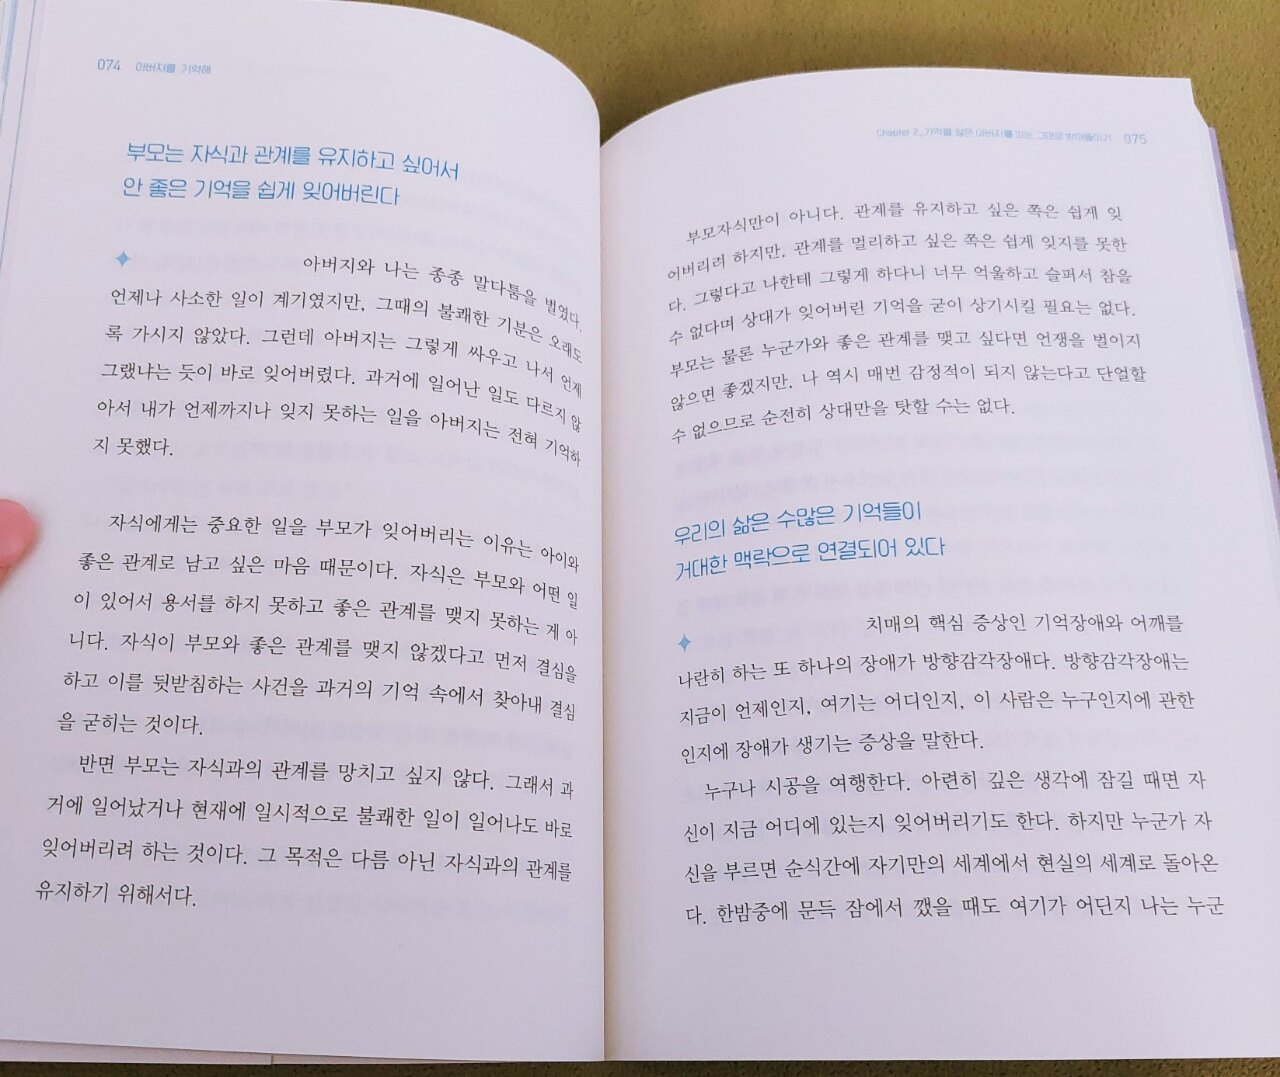 074 아버지를 기억해
부모는 자식과 관계를 유지하고 싶어서
안 좋은 기억을 쉽게 잊어버린다
아버지와 나는 종종 말다툼을 벌였다.
언제나 사소한 일이 계기였지만, 그때의 불쾌한 기분은 오래도
록 가시지 않았다. 그런데 아버지는 그렇게 싸우고 나서 언제
그랬냐는 듯이 바로 잊어버렸다. 과거에 일어난 일도 다르지 않
아서 내가 언제까지나 잊지 못하는 일을 아버지는 전혀 기억하
지 못했다.
자식에게는 중요한 일을 부모가 잊어버리는 이유는 아이와
좋은 관계로 남고 싶은 마음 때문이다. 자식은 부모와 어떤 일
이 있어서 용서를 하지 못하고 좋은 관계를 맺지 못하는 게 아
니다. 자식이 부모와 좋은 관계를 맺지 않겠다고 먼저 결심을
하고 이를 뒷받침하는 사건을 과거의 기억 속에서 찾아내 결심
을 굳히는 것이다.
반면 부모는 자식과의 관계를 망치고 싶지 않다. 그래서 과
거에 일어났거나 현재에 일시적으로 불쾌한 일이 일어나도 바로
잊어버리려 하는 것이다. 그 목적은 다름 아닌 자식과의 관계를
유지하기 위해서다.
Chapter 2_ 기억을 잃은 아버지를 있는 그대로 받아들이기 075
부모자식만이 아니다. 관계를 유지하고 싶은 쪽은 쉽게 잊
어버리려 하지만, 관계를 멀리하고 싶은 쪽은 쉽게 잊지를 못한
다. 그렇다고 나한테 그렇게 하다니 너무 억울하고 슬퍼서 참을
수 없다며 상대가 잊어버린 기억을 굳이 상기시킬 필요는 없다.
부모는 물론 누군가와 좋은 관계를 맺고 싶다면 언쟁을 벌이지
않으면 좋겠지만, 나 역시 매번 감정적이 되지 않는다고 단언할
수 없으므로 순전히 상대만을 탓할 수는 없다.
우리의 삶은 수많은 기억들이
거대한 맥락으로 연결되어 있다
치매의 핵심 증상인 기억장애와 어깨를
나란히 하는 또 하나의 장애가 방향감각장애다. 방향감각장애는
지금이 언제인지, 여기는 어디인지, 이 사람은 누구인지에 관한
인지에 장애가 생기는 증상을 말한다.
누구나 시공을 여행한다. 아련히 깊은 생각에 잠길 때면 자
신이 지금 어디에 있는지 잊어버리기도 한다. 하지만 누군가 자
신을 부르면 순식간에 자기만의 세계에서 현실의 세계로 돌아온
다. 한밤중에 문득 잠에서 깼을 때도 여기가 어딘지 나는 누군